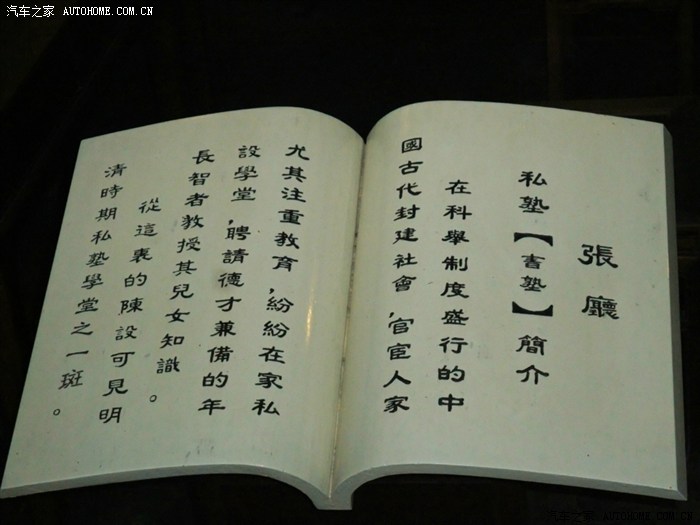 汽车之家 AUTOHOME.COM.CN
張廳
私塾【書塾】簡介
在科舉制度盛行的中
國古代封建社會，官宦人家
尤其注重教育，紛紛在家私
設學堂，聘請德才兼備的年
長智者教授其兒女知識。
從這裏的陳設可見明
清時期私塾學堂之一斑。
汽车之家 AUTOHOME.COM.CN